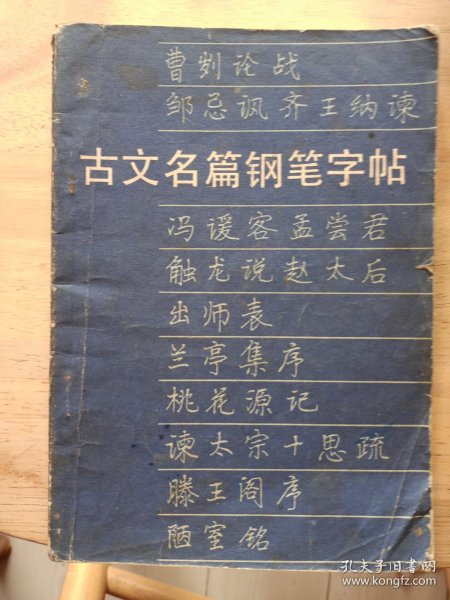 曹刿论战
邹忌讽齐王纳谏
古文名篇钢笔字帖
冯谖客孟尝君
触龙说赵太后
出师表
兰亭集序
桃花源记
谏太宗十思疏
滕王阁序
陋室铭
孔夫子旧书网
www.kongfz.com